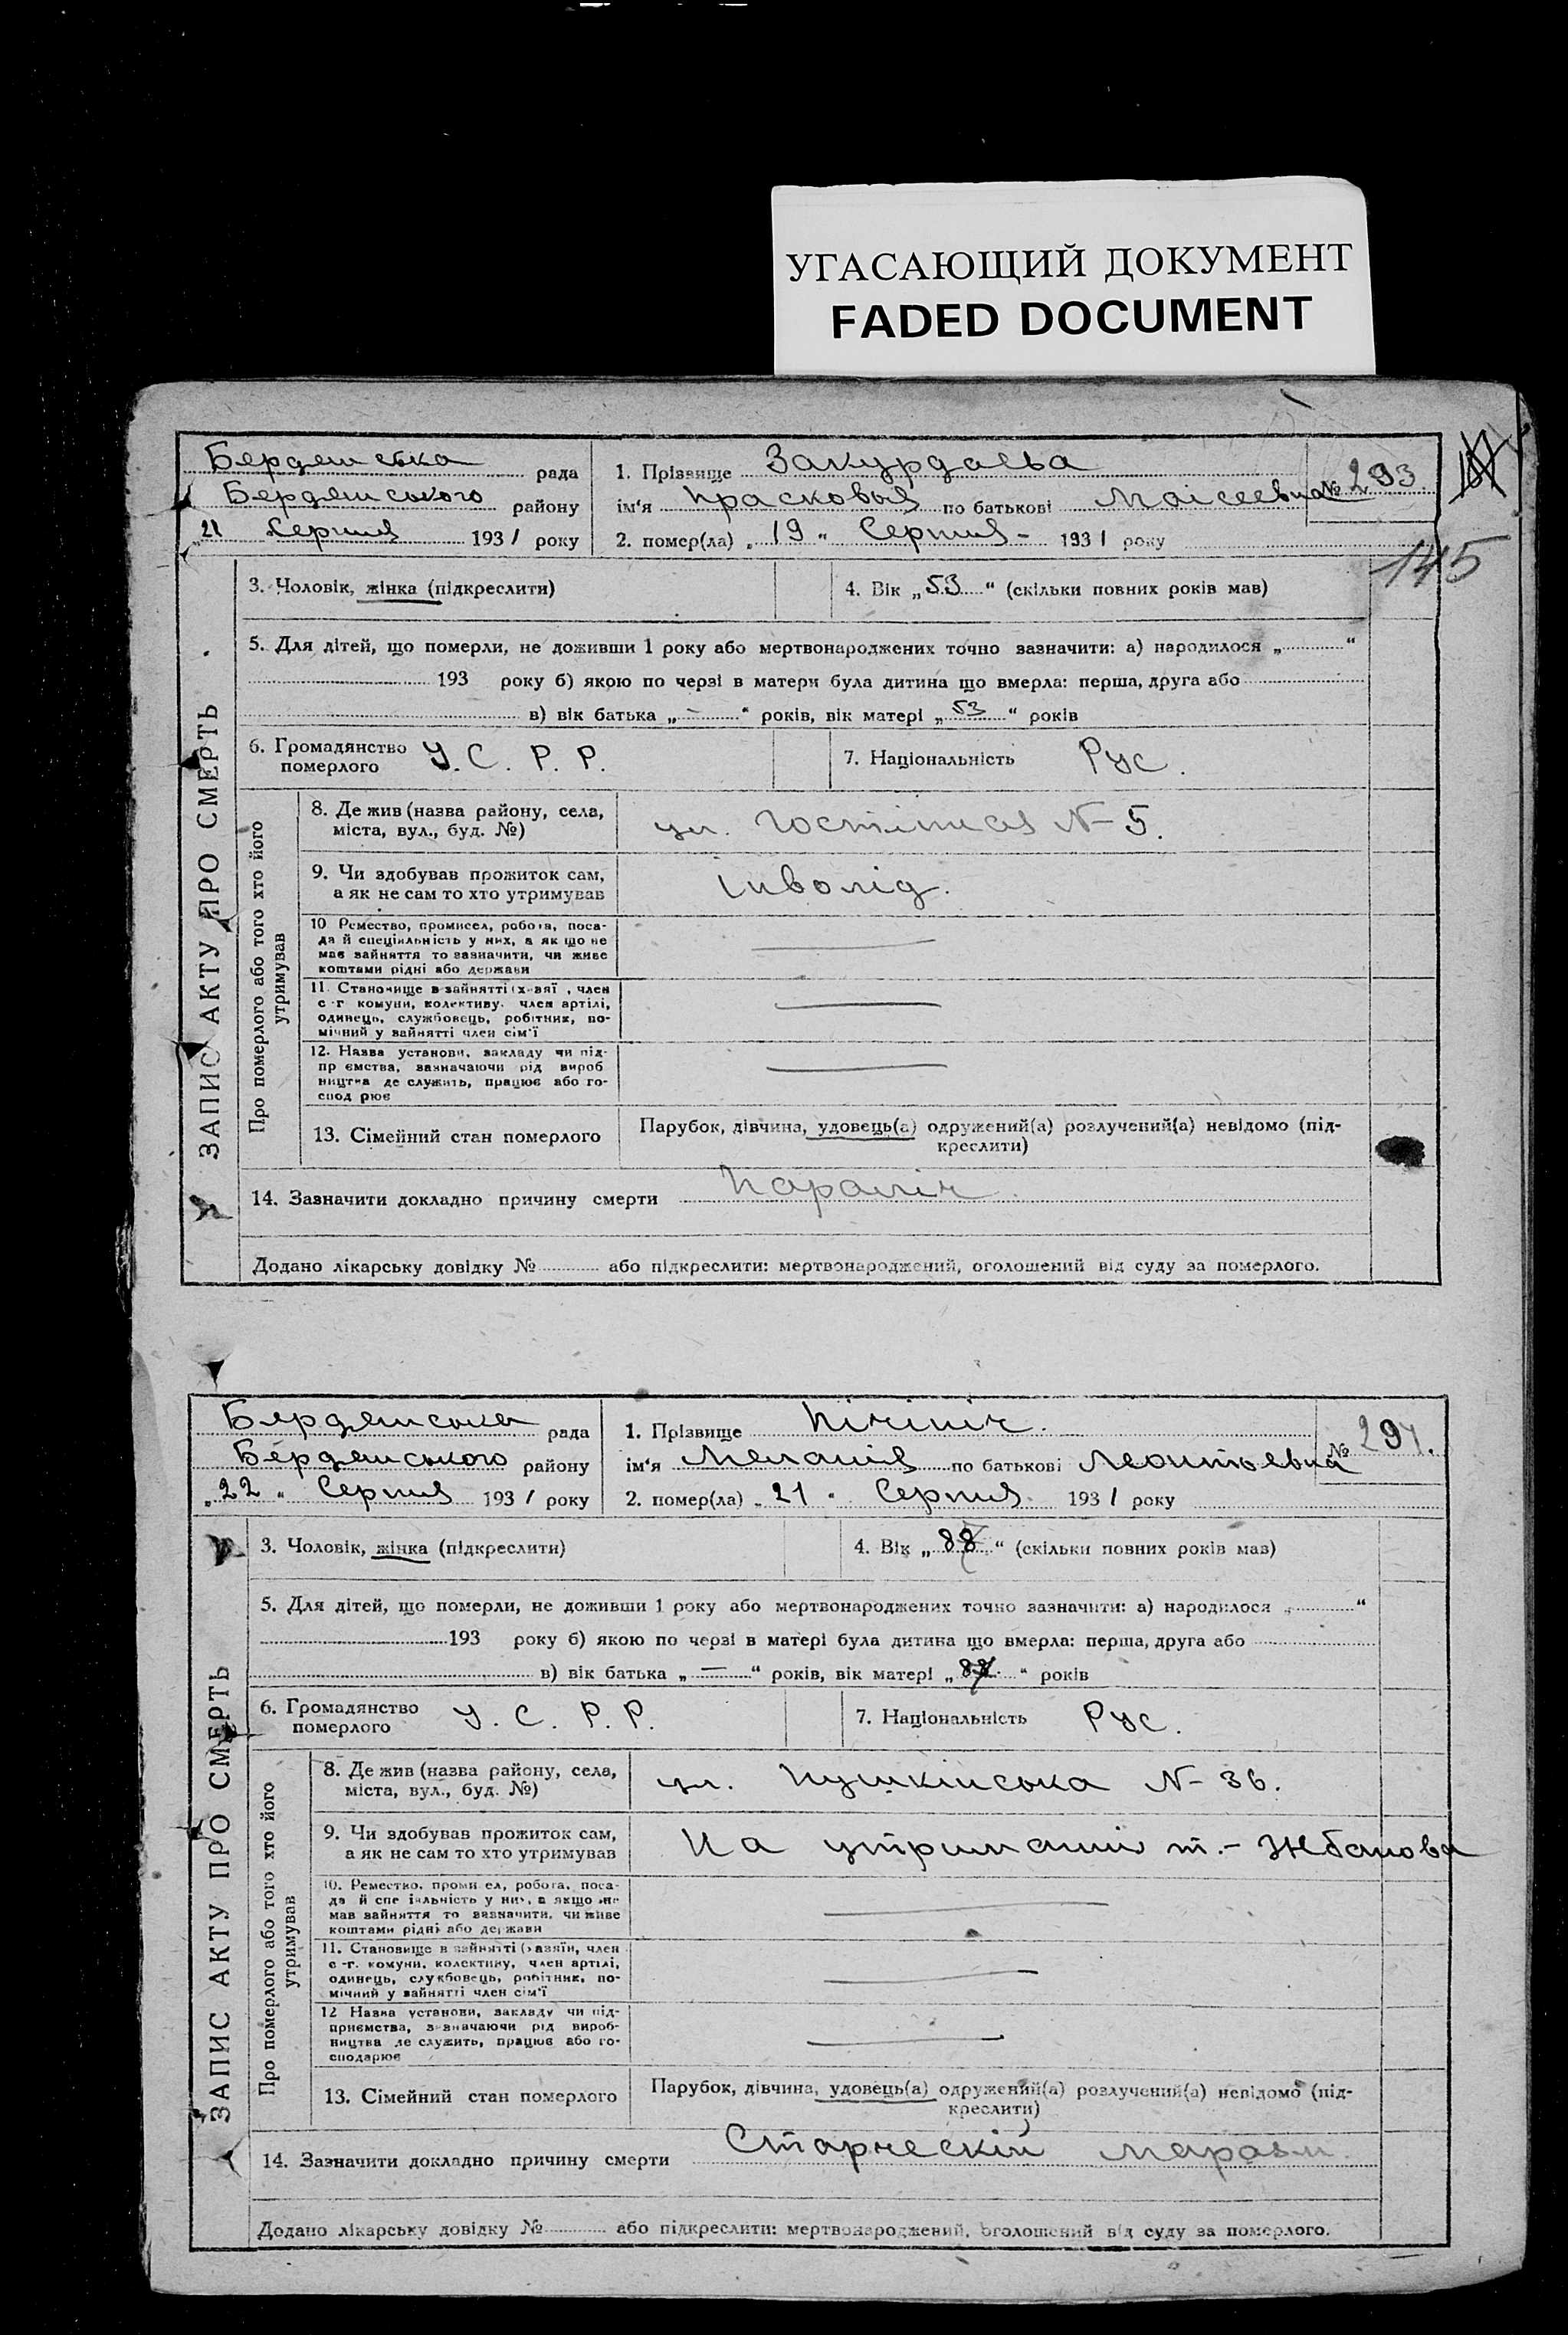 УГАСАЮЩИЙ ДОКУМЕНТ
FADED DOCUMENT
Бердянська рада
Бердянського району
„21 Серпня 1931 року
1. Прізвище Закурдаєва
ім‘я Прасковья по батькові Моісеевна № 293
2. помер(ла) „19“ Серпня 1931 року
145
ЗАПИС АКТУ ПРО СМЕРТЬ
3. Чоловік, жінка (підкреслити)
4. Вік „53“ (скільки повних років мав)
5. Для дітей, що померли, не доживши 1 року або мертвонароджених точно зазначити: а) народилося „ “
193 року б) якою по черзі в матери була дитина що вмерла: перша, друга або
в) вік батька „—“ років, вік матері „53“ років
6. Громадянство померлого У. С. Р. Р.
7. Національність Рус.
Про померлого або того хто його утримував
8. Де жив (назва району, села,
міста, вул., буд. №)
ул. N– 5.
9. Чи здобував прожиток сам,
а як не сам то хто утримував
інволід.
10 Ремество, промисел, робота, поса-
да й спеціяльність у них, а як що не
має зайняття то зазначити, чи живе
коштами рідні або держави
11. Становище в зайнятті (х-зяї , член
с -г комуни, колективу, член артілі,
одинець, службовець, робітник, по-
мічний у зайнятті член сім'ї
12. Назва установи, закладу чи під-
пр ємства, зазначаючи рід вироб
ництва де служить, працює або го-
спод рює
13. Сімейний стан померлого
Парубок, дівчина, удовець(а) одружений(а) розлучений(а) невідомо (під-
креслити)
14. Зазначити докладно причину смерти Параліч
Додано лікарську довідку № або підкреслити: мертвонароджений, оголошений від суду за померлого.
Бердянська рада
Бердянського району
„22“ Серпня 1931 року
1. Прізвище Пічініч.
ім‘я Меланія по батькові Леонтьевна № 294.
2. помер(ла) „21“ Серпня 1931 року
ЗАПИС АКТУ ПРО СМЕРТЬ
3. Чоловік, жінка (підкреслити)
4. Вік „ “ (скільки повних років мав)
5. Для дітей, що померли, не доживши 1 року або мертвонароджених точно зазначити: а) народилося „ “
193 року б) якою по черзі в матері була дитина що вмерла: перша, друга або
в) вік батька „—“ років, вік матері „ “ років
6. Громадянство померлого У. С. Р. Р.
7. Національність Рус.
Про померлого або того хто його утримував
8. Де жив (назва району, села,
міста, вул., буд. №)
ул. Пушкінська N– 36.
9. Чи здобував прожиток сам,
а як не сам то хто утримував
На утриманні т.– Жбанова
10. Ремество, проми ел, робота, поса-
да й спе іяльність у них, а якщо не
мав зайняття то зазначити, чи живе
коштами рідні або держави
11. Становище в зайнятті ( азяїн, член
с -г. комуни, колективу, член артілі,
одинець, службовець, робітник, по-
мічний у зайнятті член сім'ї
12 Назва установи, закладу чи під-
приємства, зазначаючи рід вироб-
ництва де служить, працює або го-
сподарює
13. Сімейний стан померлого
Парубок, дівчина, удовець(а) одружений(а) розлучений(а) невідомо (під-
креслити)
14. Зазначити докладно причину смерти Старческій маразм
Додано лікарську довідку № або підкреслити: мертвонароджений, оголошений від суду за померлого.